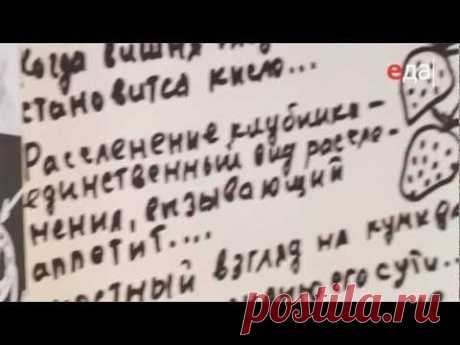 Когда вишня
становится кисло...
еда
Расчленение клубники -
единственный вид расчле-
нения, вызывающий
аппетит....
взгляд на кумква
его сути...
postila.ru